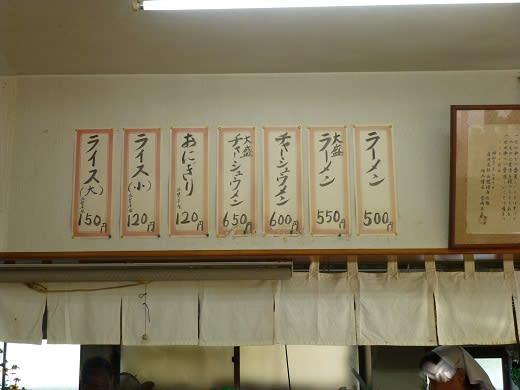 ラーメン
500円
大盛
ラーメン
550円
チャーシュウメン
600円
大盛
チャーシュウメン
650円
おにぎり
120円
ライス
(小)
120円
ライス
(大)
150円